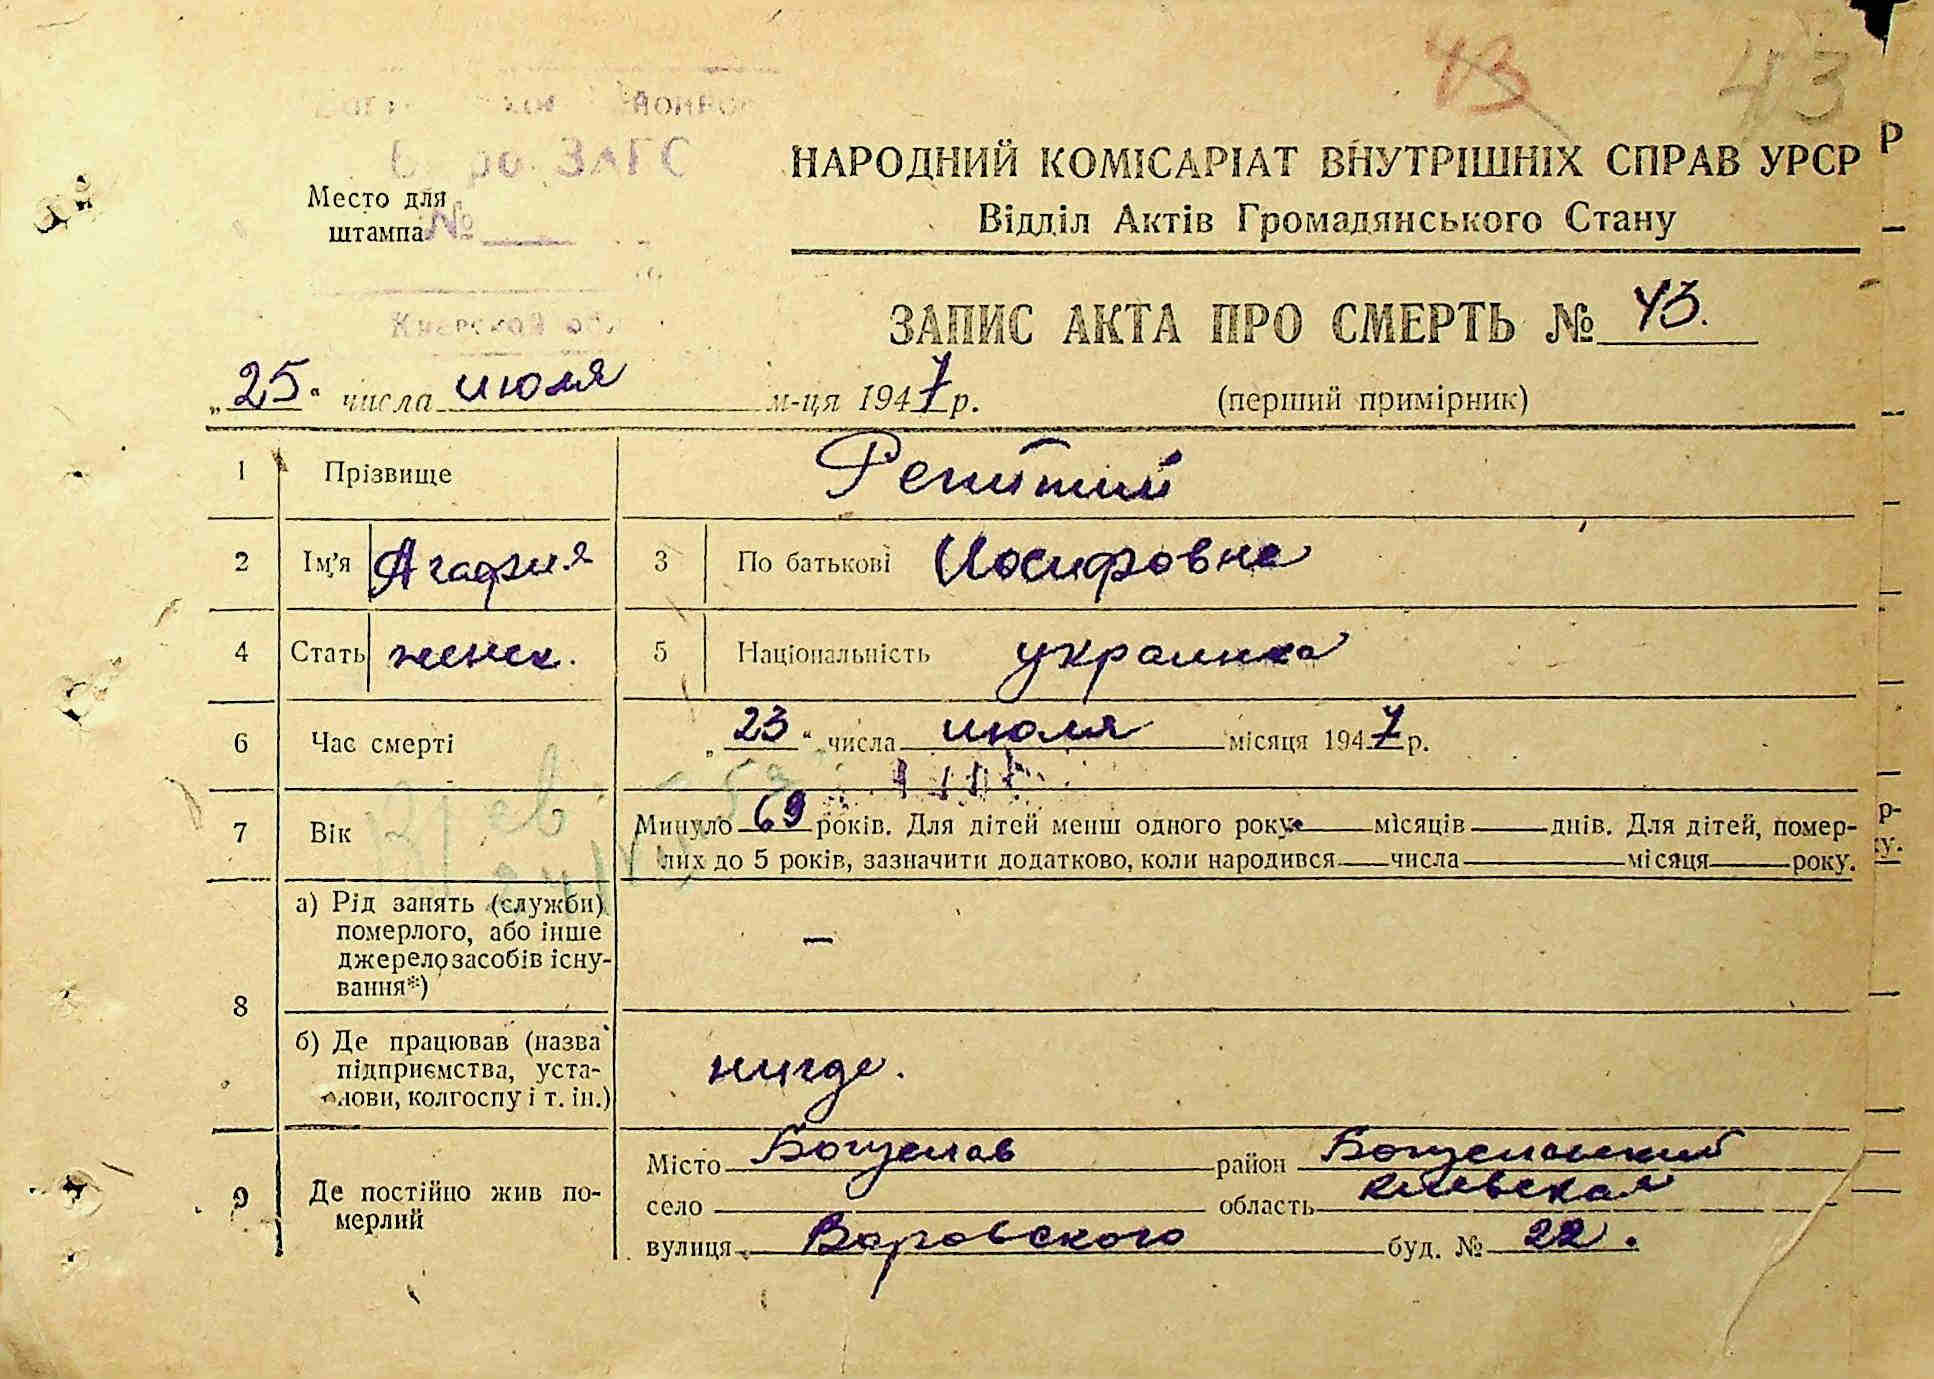 43 43
ЗАГС
НАРОДНИЙ КОМІСАРІАТ ВНУТРІШНІХ СПРАВ УРСР
Место для штампа №
Відділ Актів Громадянського Стану
Киевской обл
ЗАПИС АКТА ПРО СМЕРТЬ № 43.
„25“ числа июля м-ця 1947 р. (перший примірник)
1 Прізвище
2 Ім'я Агафия 3 По батькові Иосифовна
4 Стать женск. 5 Національність украинка
6 Час смерті „23“ числа июля місяця 1947 р.
7 Вік Минуло 69 років. Для дітей менш одного року місяців днів. Для дітей, помер-
лих до 5 років, зазначити додатково, коли народився числа місяця року.
8 а) Рід занять (служби)
померлого, або інше
джерело засобів існу-
вання*) —
б) Де працював (назва
підприємства, уста-
нови, колгоспу і т. ін.) нигде.
9 Де постійно жив по-
мерлий
Місто Богуслав район Богуславский
село область Киевская
вулиця Воровского буд. № 22.